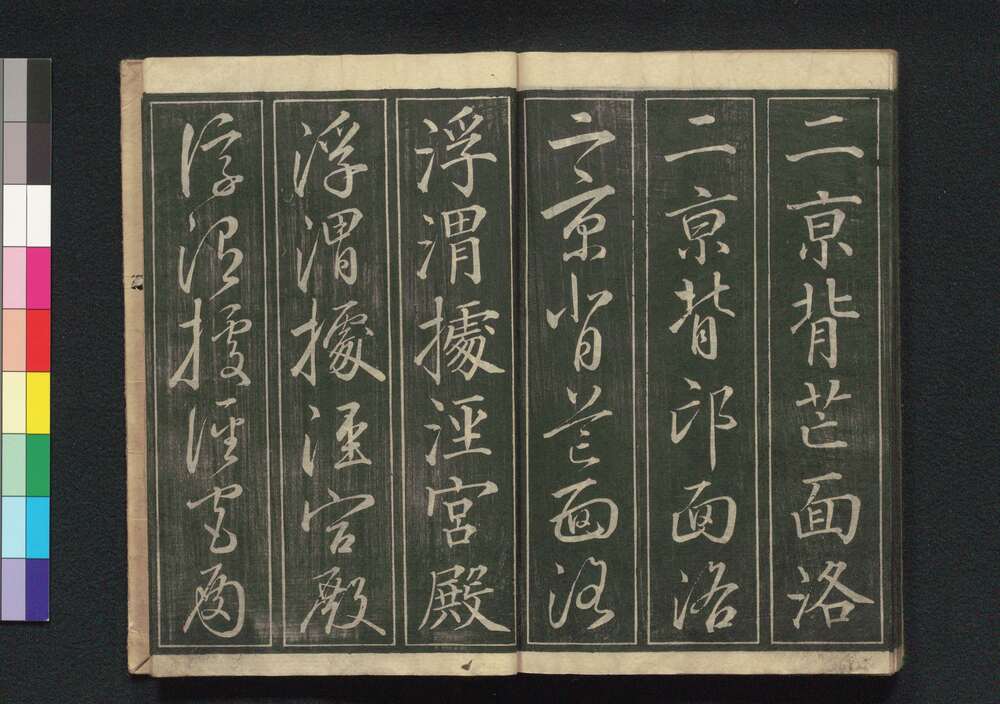 二亰背芒面洛
二亰背邙面洛
二京背芒面洛
浮渭據涇宮殿
浮渭據涇宮殿
浮渭據涇宮殿